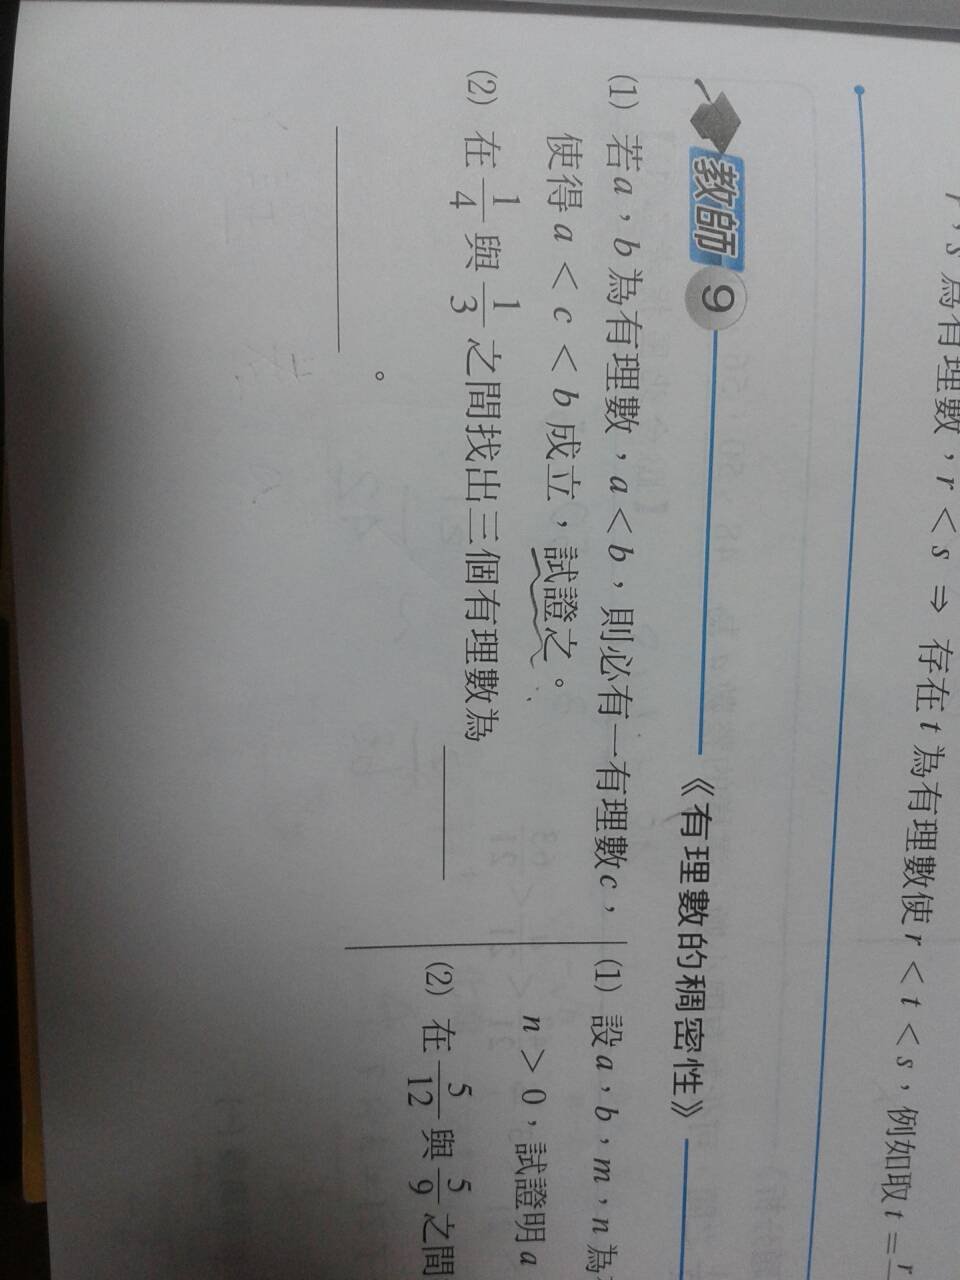 r，s 為有理數，r < s ⇒ 存在 t 為有理數使 r < t < s，例如取 t = r
教師 9 《有理數的稠密性》
(1) 若 a，b 為有理數，a < b，則必有一有理數 c，
使得 a < c < b 成立，試證之。
(2) 在 1/4 與 1/3 之間找出三個有理數為
。
(1) 設 a，b，m，n 為
n > 0，試證明 a
(2) 在 5/12 與 5/9 之間